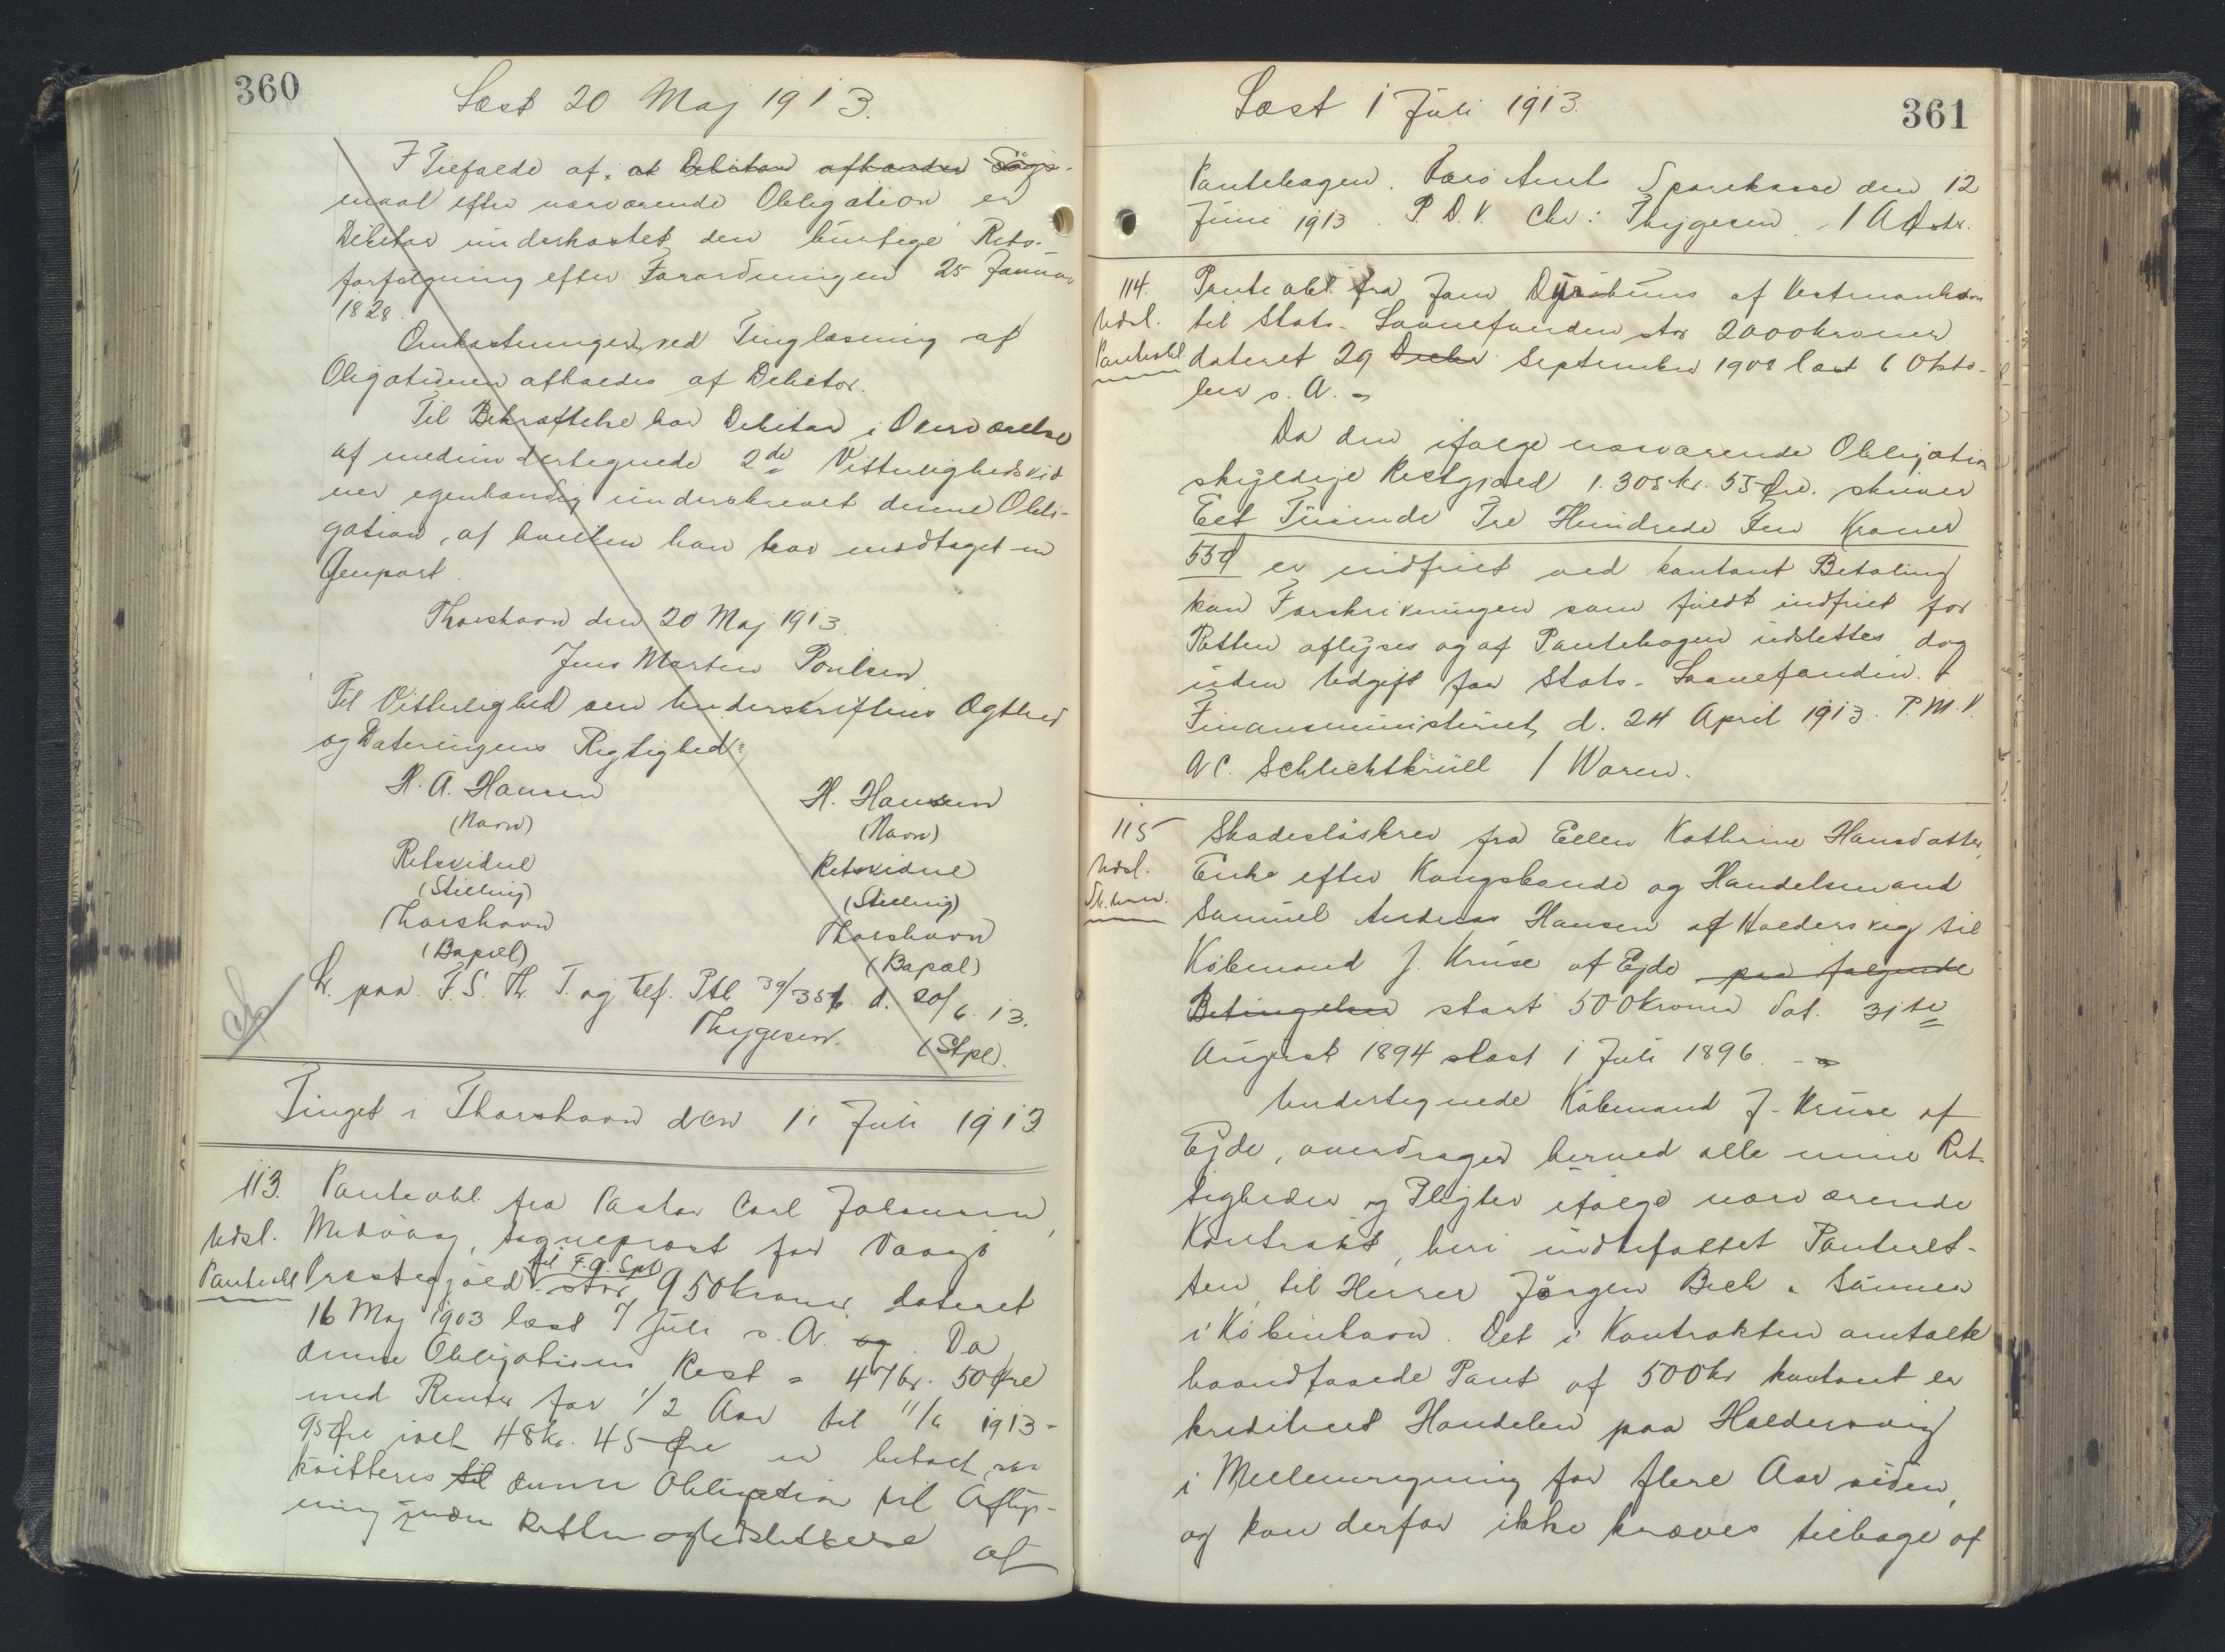 360
Læst 20 Maj 1913.
I Tilfælde af, at Debitor afhænder Søgs-
maal efter nærværende Obligation er
Debitor underkastet den hurtige Rets-
forfølgning efter Forordningen 25 Januar
1828.
Omkostningen ved Tinglæsning af
Obligationen afholdes af Debitor.
Til Bekræftelse har Debitor i Overværelse
af medundertegnede 2de Vitterlighedsvid
ner egenhændig underskrevet denne Obli-
gation, af hvilken han har modtaget en
Genpart.
Thorshavn den 20 Maj 1913.
Jens Morten Poulsen
Til Vitterlighed om Underskriftens Ægthed
og Dateringens Rigtighed:
H. A. Hansen H. Hansen
(Navn) (Navn)
Retsvidne Retsvidne
(Stilling) (Stilling)
Thorshavn Thorshavn
(Bopæl) (Bopæl)
Lr. paa F. S. Th. T. og Tlf. Ptb. 39/356 d. 20/6. 13.
Thygesen. (Stpl).
Tinget i Thorshavn den 1. Juli 1913
113. Panteobl. fra Pastor Carl Johansen,
Udsl. Midvaag, Sognepræst for Vaagø
Panteobl Præstegjæld til F. A. Spk stor 950 Kroner dateret
16 Maj 1903 læst 7 Juli s. A. og. Da
denne Obligations Rest = 47 kr. 50 Øre
med Renter for 1/2 Aar til 11/6 1913 =
95 Øre ialt 48 kr. 45 Øre er betalt, saa
kvitteres til denne Obligation til Aflys-
ning inden Retten og Udslettelse af
361
Læst 1 Juli 1913.
Pantebogen. Færø Amts Sparekasse den 12
Juni 1913. P. D. V. Chr: Thygesen. / A
114. Panteobl. fra Jens af Vestmanhavn
Udsl. til Stats-Laanefonden stor 2000 Kroner
Panteobl dateret 29 September 1908 læst 6 Okto-
ber s. A. =
Da den ifølge nærværende Obligation
skyldige Restgjæld 1.305 kr. 55 Øre. skriver
Eet Tusinde Tre Hundrede Fem Kroner
55 Ø er indfriet ved kontant Betaling
kan Forskrivningen som fuldt indfriet for
Retten aflyses og af Pantebogen udslettes dog
uden Udgift for Stats-Laanefonden.
Finansministeriet, d. 24 April 1913. P. M. V.
A C. Schlichtkrüll / Waren.
115 Skadesløsbrev fra Ellen Kathrine Hansdatter,
Udsl. Enke efter Kongsbonde og Handelsmand
Sk.brev. Samuel Andreas Hansen af Haldersvig til
Købmand J. Kruse af Ejde paa følgende
Betingelser stort 500 Kroner dat. 31te
August 1894 læst 1 Juli 1896. -
Undertegnede Købmand J. Kruse af
Ejde, overdrager herved alle mine Ret-
tigheder og Pligter ifølge nærværende
Kontrakt, heri indbefattet Panteret-
ten, til Herrer Jørgen Bech & Sønner
i København. Det i Kontrakten omtalte
haandfaaede Pant af 500 kr kontant er
krediteret Handelen paa Haldersvig
i Mellemregning for flere Aar siden,
og kan derfor ikke kræves tilbage af